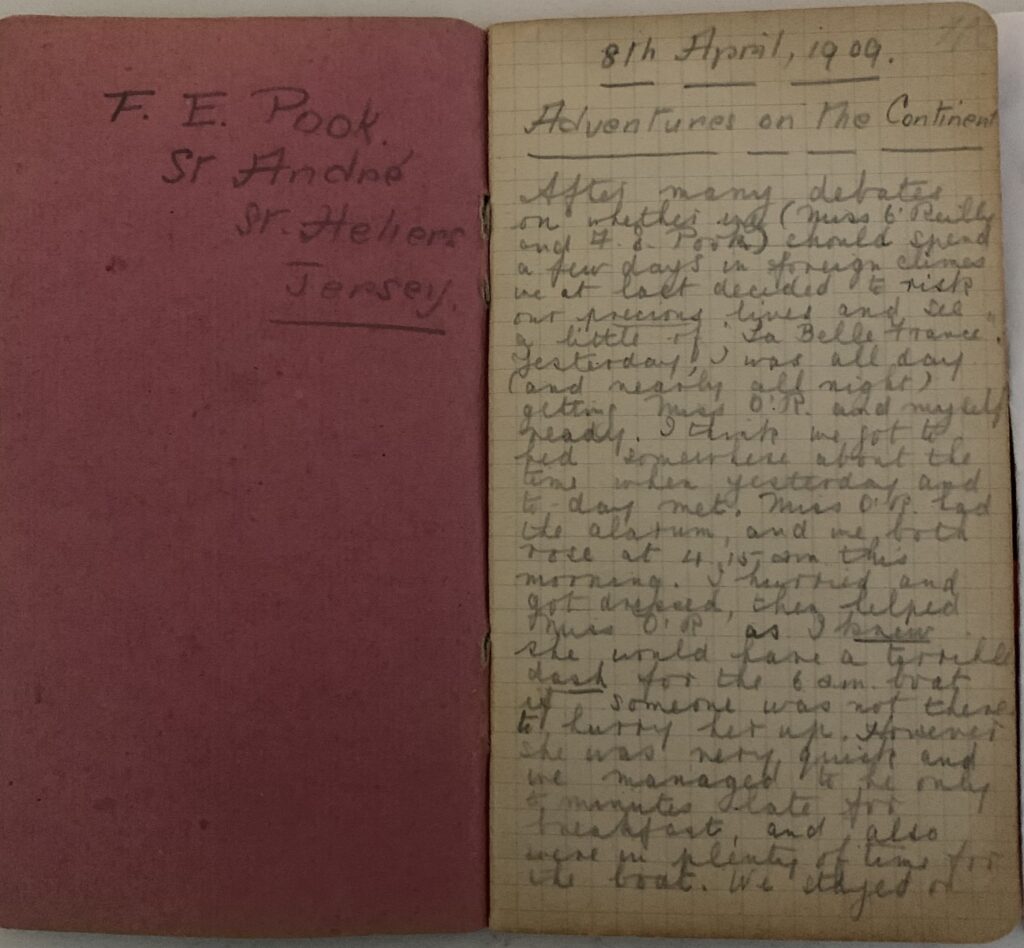 F. E. Pook.
St André
St. Heliers
Jersey.
8th April, 1909.
Adventures on the Continent
After many debates
on whether we (Miss O'Reilly
and F. E. Pook) should spend
a few days in foreign climes
we at last decided to risk
our precious lives and see
a little of "La Belle France".
Yesterday, I was all day
(and nearly all night)
getting Miss O'R. and myself
ready. I think we got to
bed somewhere about the
time when yesterday and
to-day met. Miss O'R. had
the alarum, and we both
rose at 4.15 am this
morning. I hurried and
got dressed, then helped
Miss O'R as I knew
she would have a terrible
dash for the 6 am. boat
if someone was not there
to hurry her up. However
she was very quick and
we managed to be only
minutes late for
breakfast, and also
were in plenty of time for
the boat. We stayed